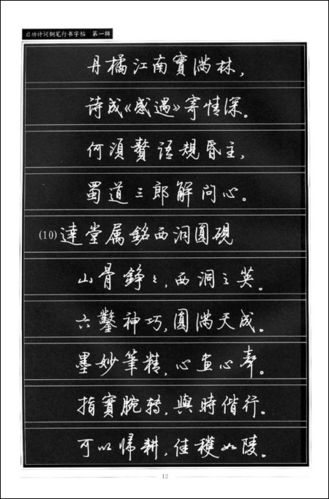 启功诗词钢笔行书字帖 第一辑
丹橘江南實满林,
诗成《感遇》寄情深。
何須贅语規昏主,
蜀道三郎解问心。
(10)達堂属銘西洞圆硯
山骨錚々,西洞之英。
六鑿神巧,圓满天成。
墨妙筆精,心画心聲。
指實腕转,與時偕行。
可以歸耕,佳穫如陵。
12